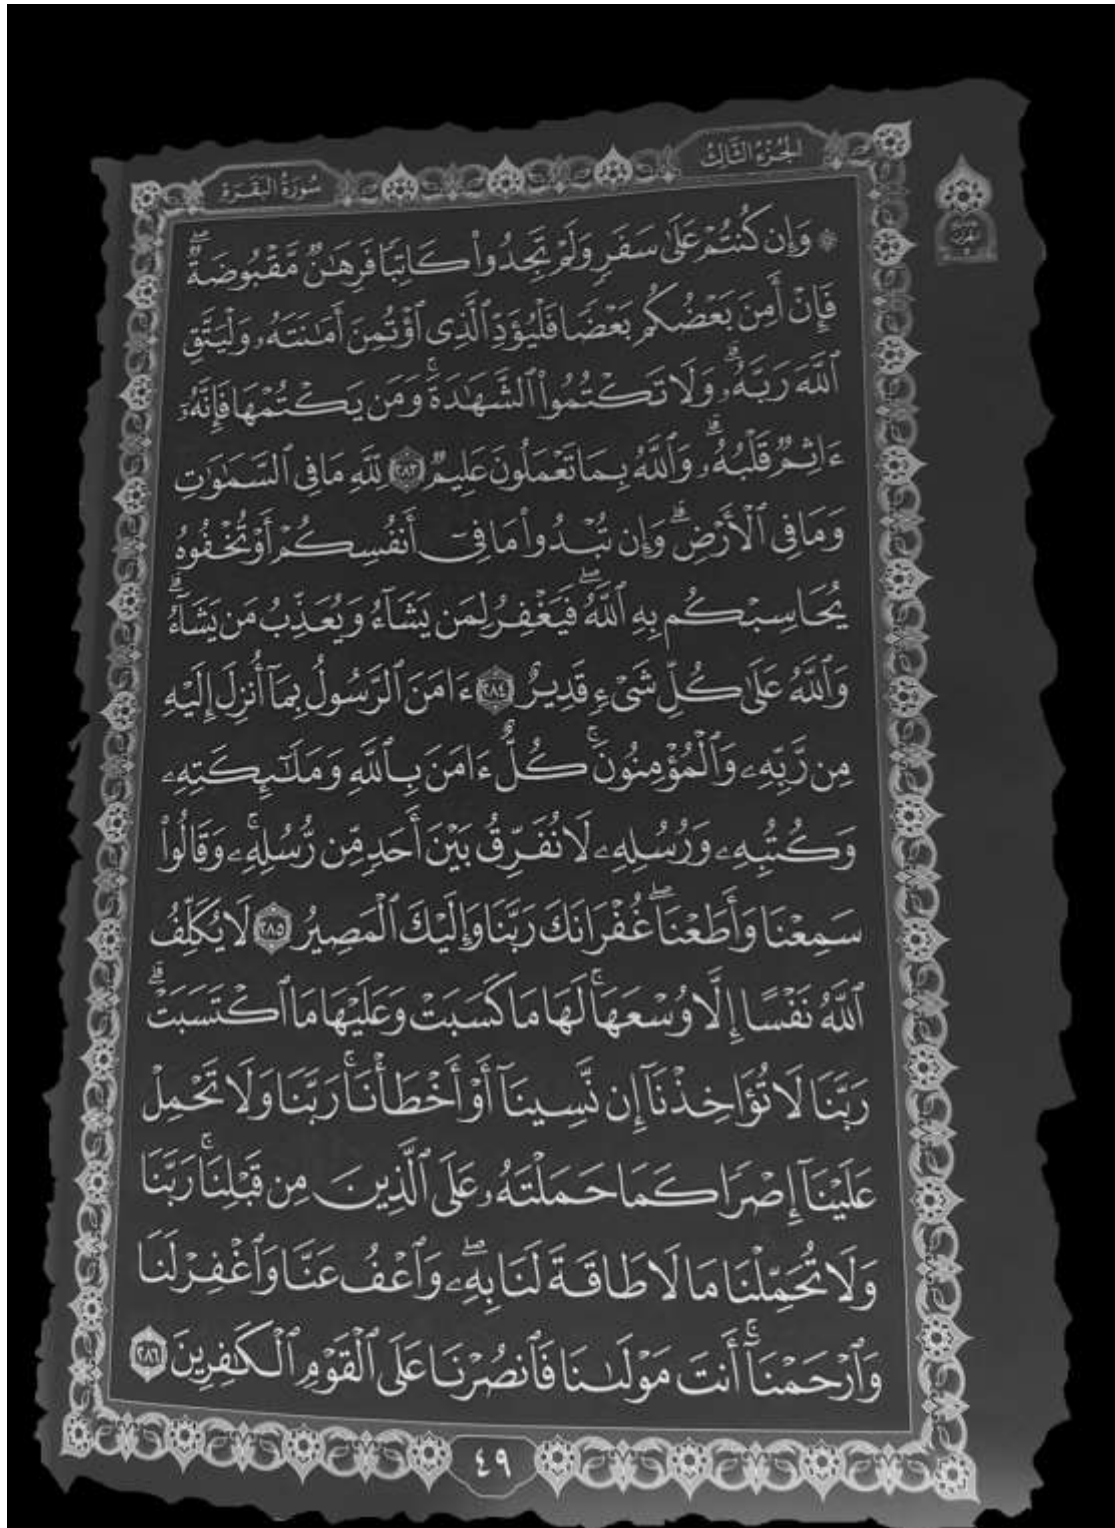 الجزء الثالث
سورة البقرة
۞ وَإِن كُنتُمْ عَلَىٰ سَفَرٍ وَلَمْ تَجِدُوا۟ كَاتِبًا فَرِهَـٰنٌ مَّقْبُوضَةٌ ۖ
فَإِنْ أَمِنَ بَعْضُكُم بَعْضًا فَلْيُؤَدِّ ٱلَّذِى ٱؤْتُمِنَ أَمَـٰنَتَهُۥ وَلْيَتَّقِ
ٱللَّهَ رَبَّهُۥ ۗ وَلَا تَكْتُمُوا۟ ٱلشَّهَـٰدَةَ ۚ وَمَن يَكْتُمْهَا فَإِنَّهُۥٓ
ءَاثِمٌ قَلْبُهُۥ ۗ وَٱللَّهُ بِمَا تَعْمَلُونَ عَلِيمٌ ٢٨٣ لِّلَّهِ مَا فِى ٱلسَّمَـٰوَٰتِ
وَمَا فِى ٱلْأَرْضِ ۗ وَإِن تُبْدُوا۟ مَا فِىٓ أَنفُسِكُمْ أَوْ تُخْفُوهُ
يُحَاسِبْكُم بِهِ ٱللَّهُ ۖ فَيَغْفِرُ لِمَن يَشَآءُ وَيُعَذِّبُ مَن يَشَآءُ ۗ
وَٱللَّهُ عَلَىٰ كُلِّ شَىْءٍ قَدِيرٌ ٢٨٤ ءَامَنَ ٱلرَّسُولُ بِمَآ أُنزِلَ إِلَيْهِ
مِن رَّبِّهِۦ وَٱلْمُؤْمِنُونَ ۚ كُلٌّ ءَامَنَ بِٱللَّهِ وَمَلَـٰٓئِكَتِهِۦ
وَكُتُبِهِۦ وَرُسُلِهِۦ لَا نُفَرِّقُ بَيْنَ أَحَدٍ مِّن رُّسُلِهِۦ ۚ وَقَالُوا۟
سَمِعْنَا وَأَطَعْنَا ۖ غُفْرَانَكَ رَبَّنَا وَإِلَيْكَ ٱلْمَصِيرُ ٢٨٥ لَا يُكَلِّفُ
ٱللَّهُ نَفْسًا إِلَّا وُسْعَهَا ۚ لَهَا مَا كَسَبَتْ وَعَلَيْهَا مَا ٱكْتَسَبَتْ ۗ
رَبَّنَا لَا تُؤَاخِذْنَآ إِن نَّسِينَآ أَوْ أَخْطَأْنَا ۚ رَبَّنَا وَلَا تَحْمِلْ
عَلَيْنَآ إِصْرًا كَمَا حَمَلْتَهُۥ عَلَى ٱلَّذِينَ مِن قَبْلِنَا ۚ رَبَّنَا
وَلَا تُحَمِّلْنَا مَا لَا طَاقَةَ لَنَا بِهِۦ ۖ وَٱعْفُ عَنَّا وَٱغْفِرْ لَنَا
وَٱرْحَمْنَآ ۚ أَنتَ مَوْلَىٰنَا فَٱنصُرْنَا عَلَى ٱلْقَوْمِ ٱلْكَـٰفِرِينَ ٢٨٦
٤٩